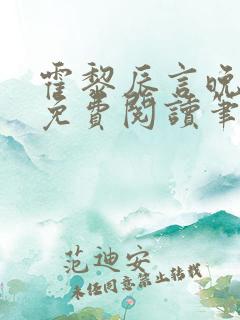 霍黎辰言晚
免費閱讀筆
范迪安
未经同意禁止转载